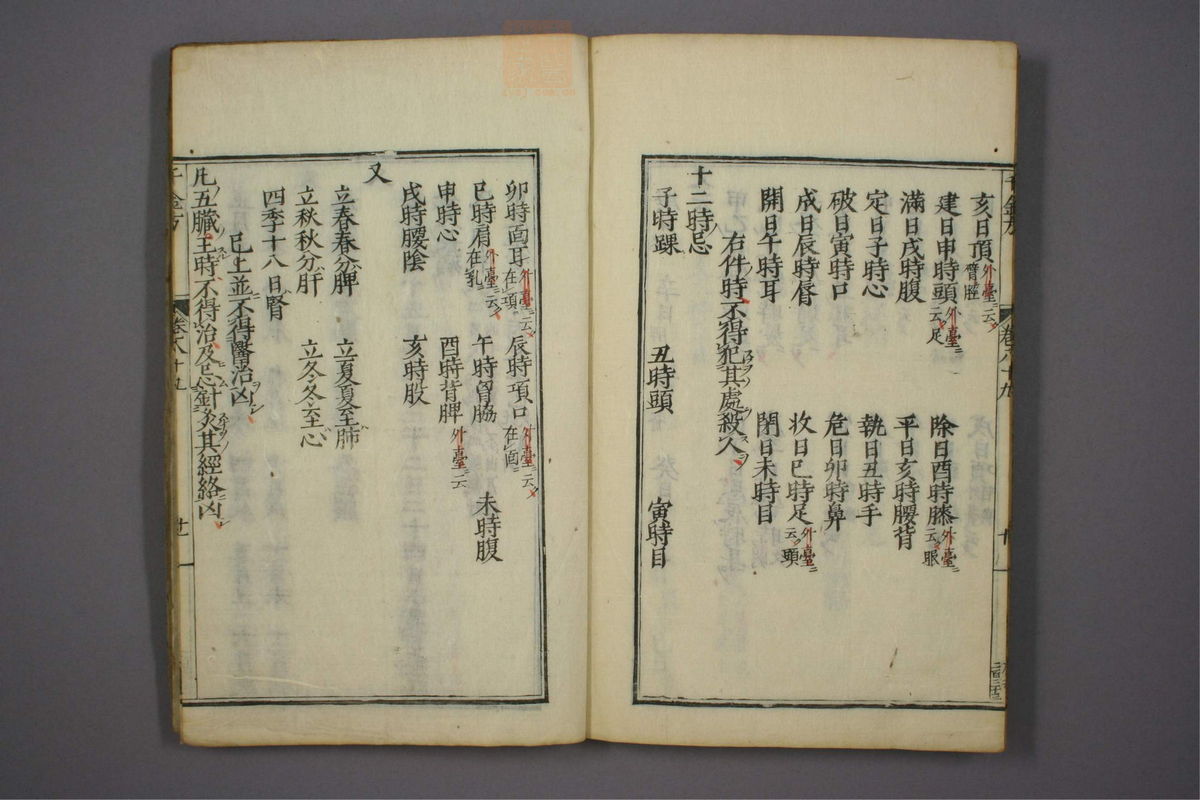 亥日頂外臺云臂脛
建日申時頭外臺云足　除日酉時膝外臺云眼
滿日戌時腹　平日亥時腰背
定日子時心　執日丑時手
破日寅時口　危日卯時鼻
成日辰時唇　收日巳時足外臺云頭
開日午時耳　閉日未時目
右件時不得犯其處殺人
十二時忌
子時踝　丑時頭　寅時目
卯時面耳外臺云在項　辰時項口外臺云在面
巳時肩外臺云在乳　午時胷脇　未時腹
申時心　酉時背脾外臺云
戌時腰陰　亥時股
又
立春春分脾　立夏夏至肺
立秋秋分肝　立冬冬至心
四季十八日腎
已上並不得醫治凶
凡五臟王時不得治及忌針灸其經絡凶
千金方　卷八十九　廿